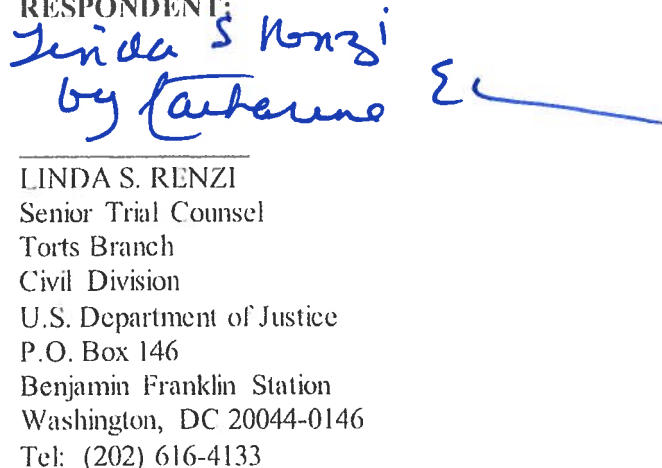 RESPONDENT:
Linda S Renzi
by Catharine E
LINDA S. RENZI
Senior Trial Counsel
Torts Branch
Civil Division
U.S. Department of Justice
P.O. Box 146
Benjamin Franklin Station
Washington, DC 20044-0146
Tel: (202) 616-4133